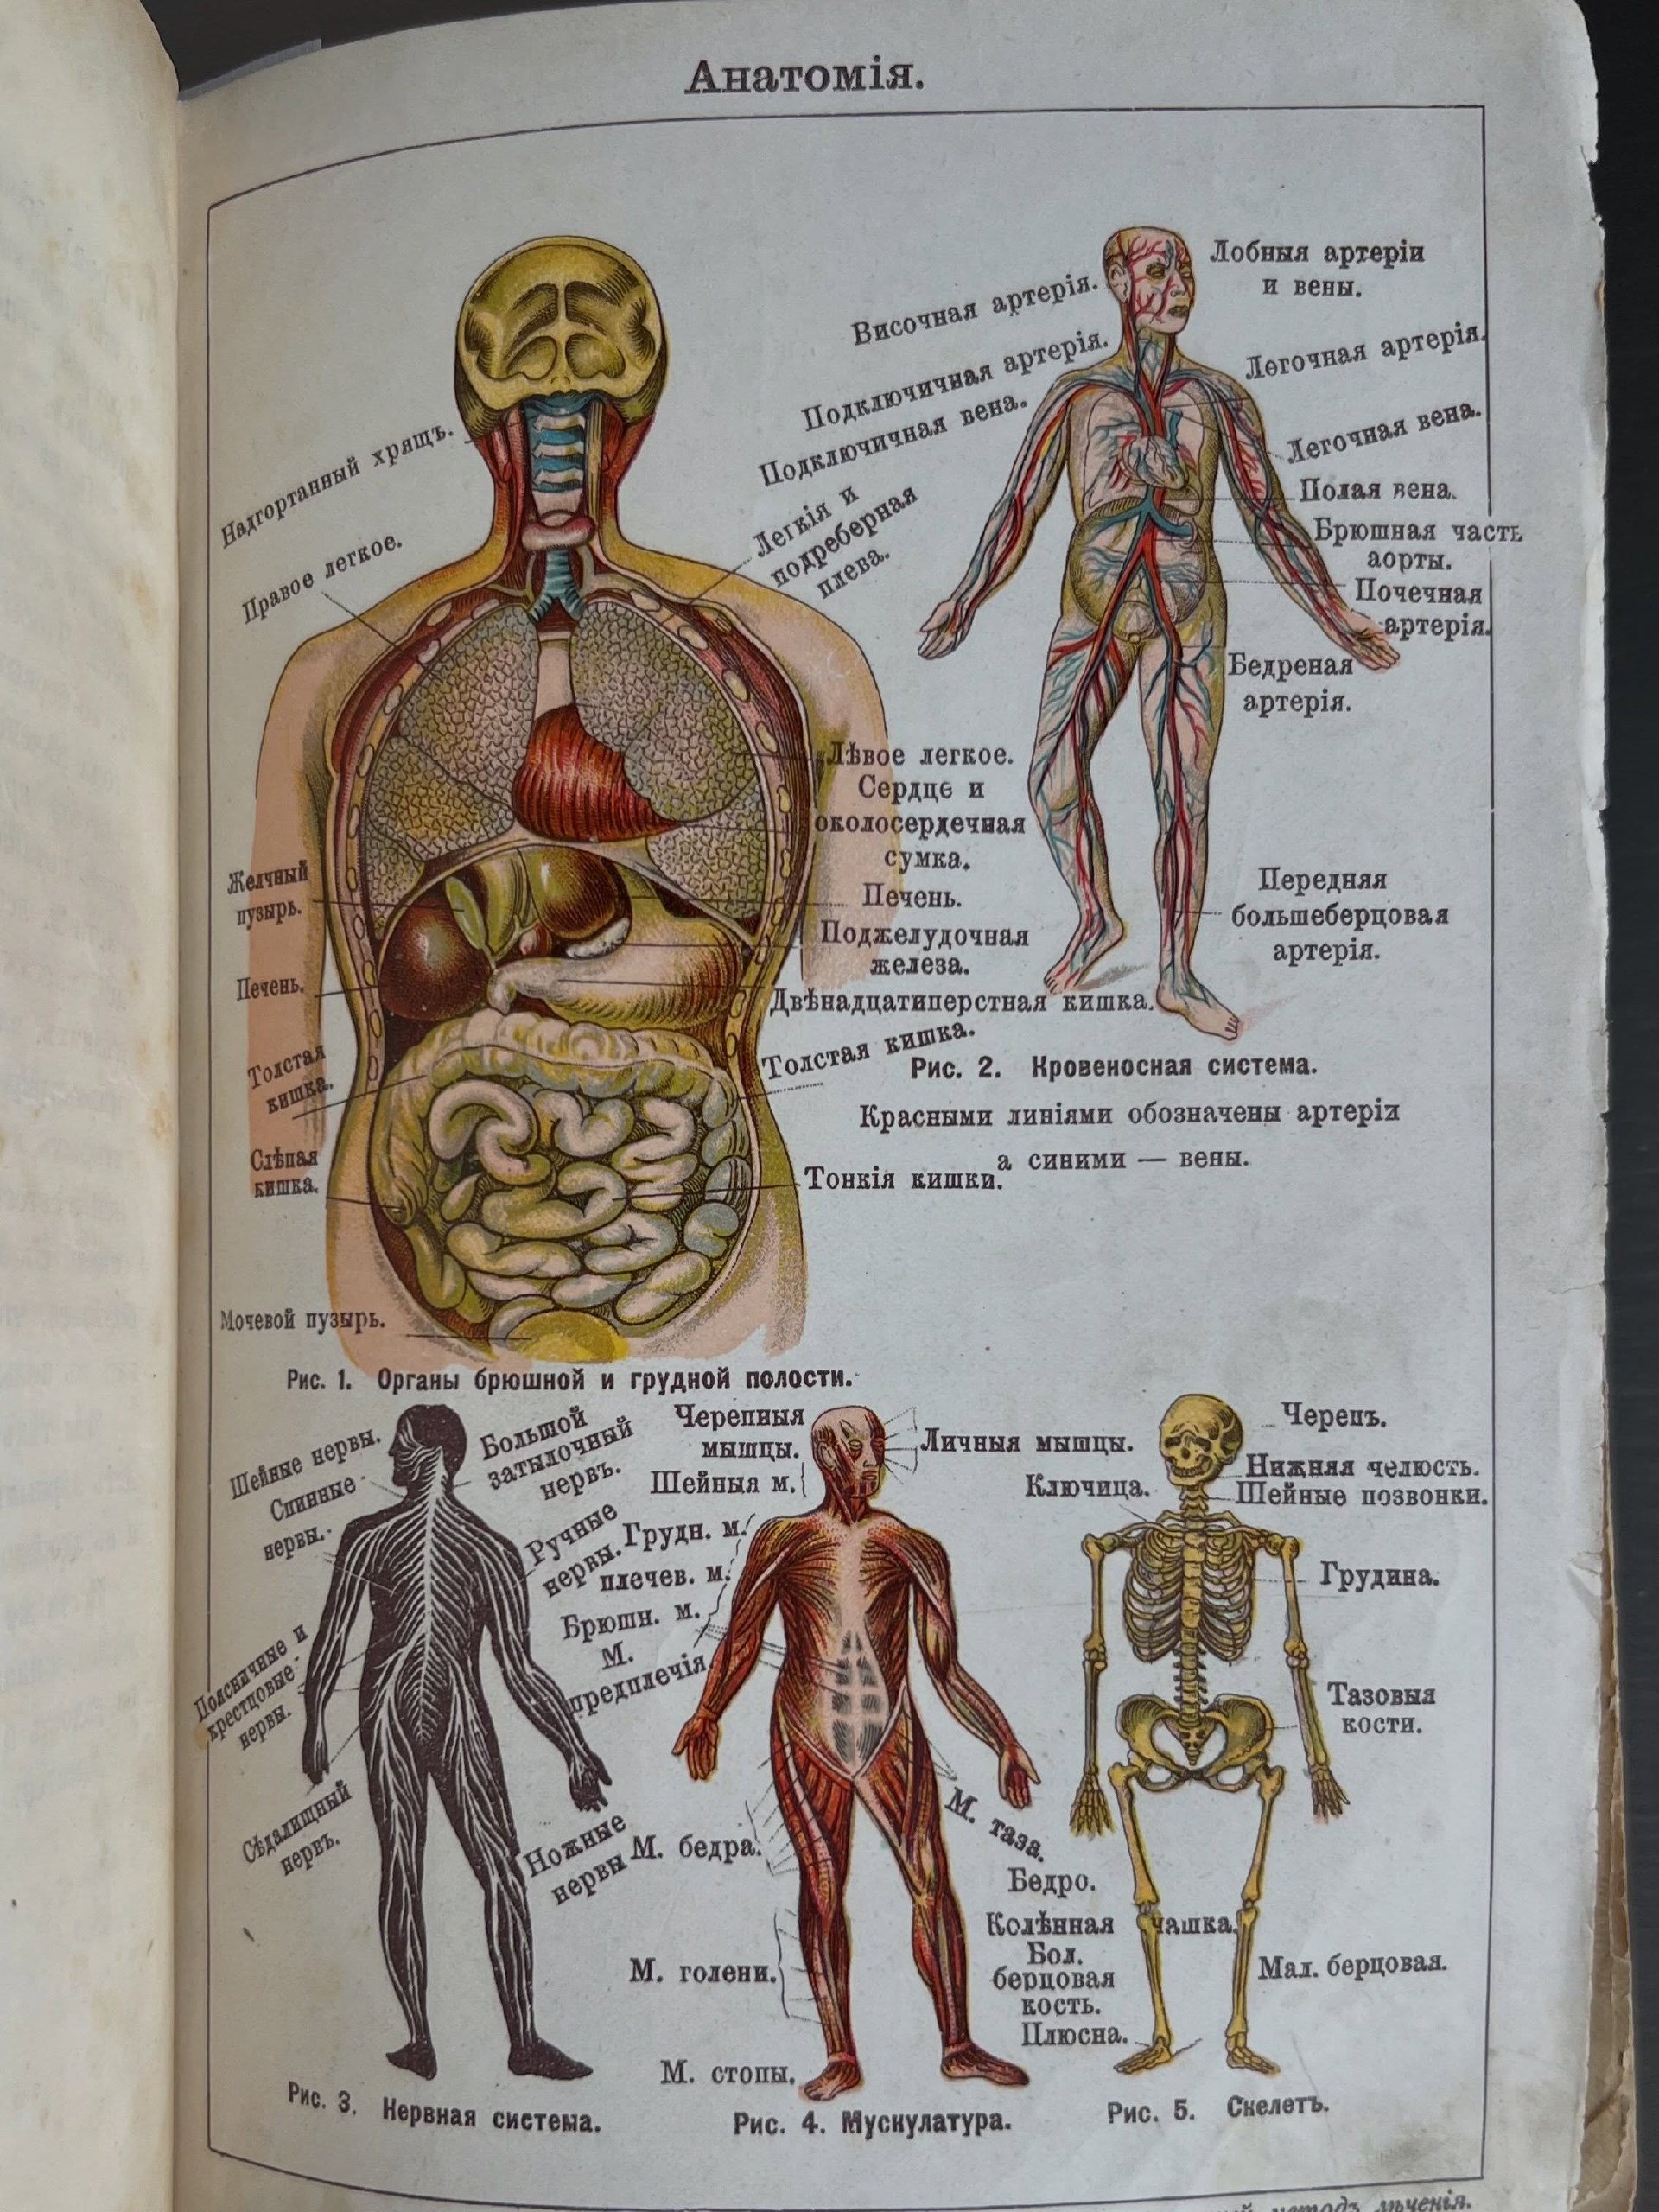 Анатомія.
Надгортанный хрящъ.
Правое легкое.
Легкія и
подреберная
плева.
Лѣвое легкое.
Сердце и
околосердечная
сумка.
Желчный
пузырь.
Печень.
Поджелудочная
железа.
Печень.
Двѣнадцатиперстная кишка.
Толстая
кишка.
Толстая кишка.
Слѣпая
кишка.
Тонкія кишки.
Мочевой пузырь.
Рис. 1. Органы брюшной и грудной полости.
Височная артерія.
Подключичная артерія.
Подключичная вена.
Лобныя артеріи
и вены.
Легочная артерія.
Легочная вена.
Полая вена.
Брюшная часть
аорты.
Почечная
артерія.
Бедреная
артерія.
Передняя
большеберцовая
артерія.
Рис. 2. Кровеносная система.
Красными линіями обозначены артеріи
а синими — вены.
Шейные нервы.
Спинные
нервы.
Большой
затылочный
нервъ.
Ручные
нервы.
Поясничные и
крестцовые
нервы.
Сѣдалищный
нервъ.
Ножные
нервы
Рис. 3. Нервная система.
Черепныя
мышцы.
Шейныя м.
Личныя мышцы.
Грудн. м.
плечев. м.
Брюшн. м.
М.
предплечія
М. таза.
М. бедра.
М. голени.
М. стопы.
Рис. 4. Мускулатура.
Черепъ.
Нижняя челюсть.
Ключица.
Шейные позвонки.
Грудина.
Тазовыя
кости.
Бедро.
Колѣнная чашка.
Бол.
берцовая
кость.
Мал. берцовая.
Плюсна.
Рис. 5. Скелетъ.
методъ лѣченія.